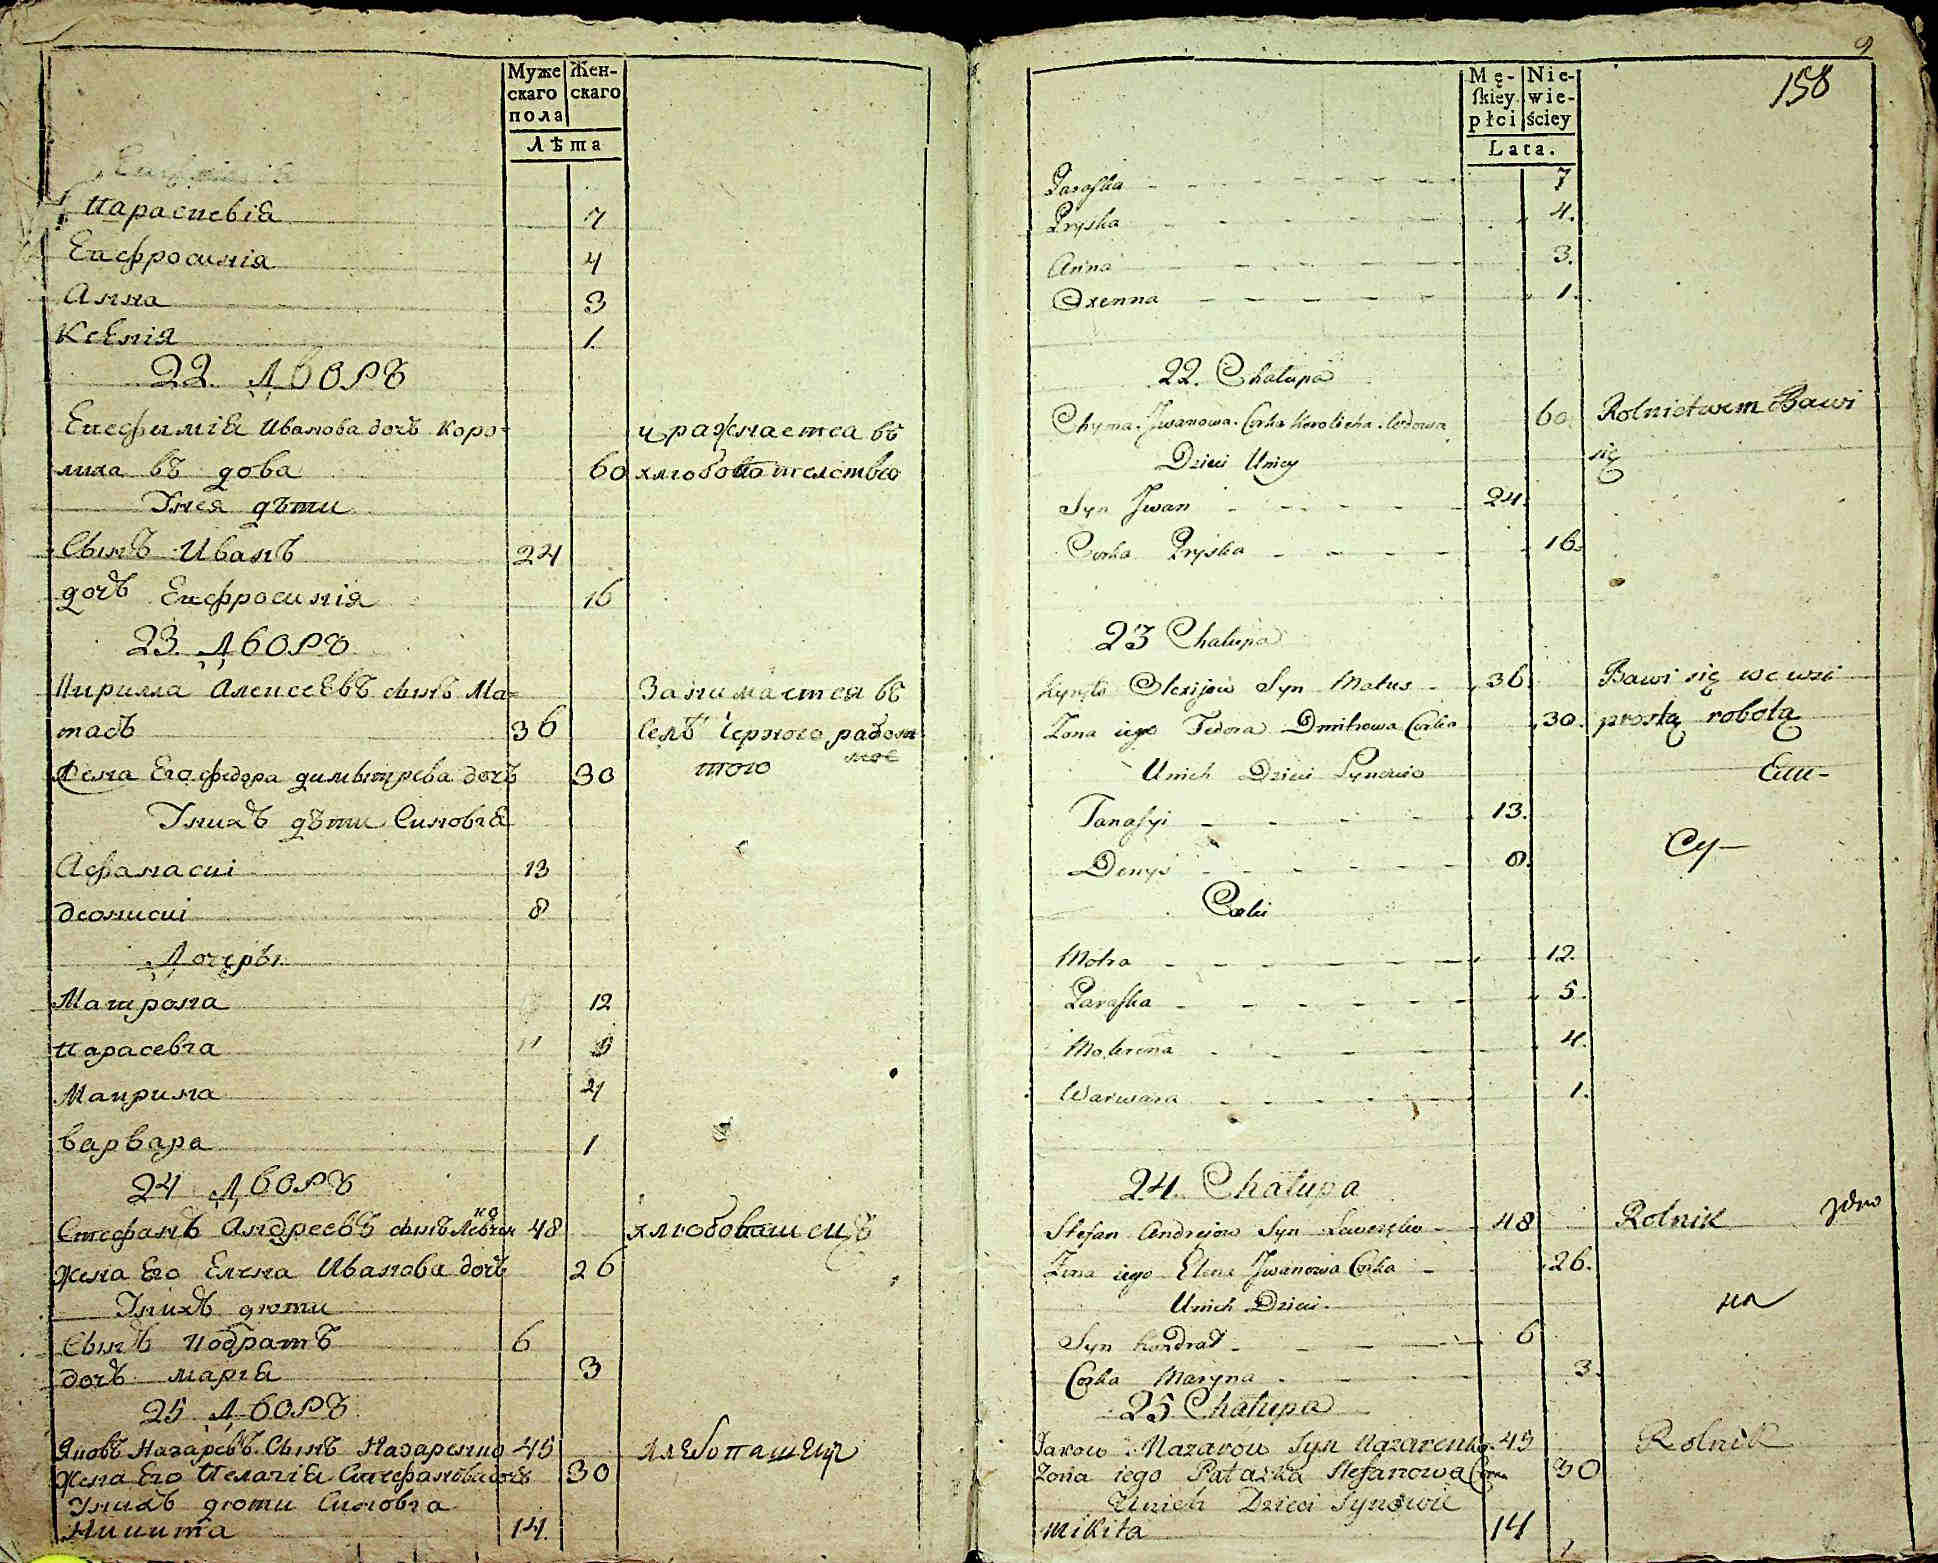 Муже
скаго
пола
Жен-
скаго
Лѣта
Параскевіа 7
Евфросинія 4
Анна 3
Ксенія 1.
22. Дворъ
Евфиміа Иванова дочъ Коро-
лиха въдова 60
упражнаетса въ
хлѣбопашествѣ
Унея дѣти
Сынъ Иванъ 24
дочъ Евфросинія 16
23. Дворъ
Кирилла Алексеевъ сынъ Ма-
тасъ 36
Занимается въ
селѣ черною работ
тою
Жена Его федора димытрева дочъ 30
Унихъ дѣти Синовіа
Афанасиі 13
деонисиі 8
Дочеры
Матрона 12
Парасевіа 5
Маирина 4
Варвара 1
24 Дворъ
Стефанъ Андреевъ сынъ 48
хлѣбопашецъ
Жена Его Елена Иванова дочъ 26
Унихъ дѣти
Сынъ Кодратъ 6
дочъ Маріа 3
25 Дворъ
Яковъ Назаревъ Сынъ Назаренко 45
хлѣбопашецъ
Жена Его Пелагіа Стефановна дочъ 30
Унихъ дѣти Синовіа
Никита 14.
9
158
Mę-
skiey
płci
Nie-
wie-
ściey
Lata.
Paraska 7
Pryska 4.
Anna 3.
Oxenna 1.
22. Chałupa
Chyma Jwanowa Corka Korolicha Wdowa 60.
Rolnictwem Bawi
się
Dzieci Unicy
Syn Jwan 24.
Corka Pryska 16.
23 Chałupa
Kiryło Olexijow Syn Matus 36.
Bawi się we wsi
Zona iego Fedora Dmitrowa Corka 30.
prostą robotą
Unich Dzieci Synowie
Tanasyi 13.
Denys 8.
Corki
Motra 12.
Paraska 5.
Moterena 4.
Warwara 1.
24. Chałupa
Stefan Andrejow Syn 48
Rolnik
Zona iego Elena Jwanowa Corka 26.
Unich Dzieci.
Syn Kondrat 6
Corka Maryna 3.
25 Chałupa
Jakow Nazarow Syn Nazarenko 45
Rolnik
Zona iego Pałaszka Stefanowa Corka 30
Unich Dzieci Synowie
Mikita 14